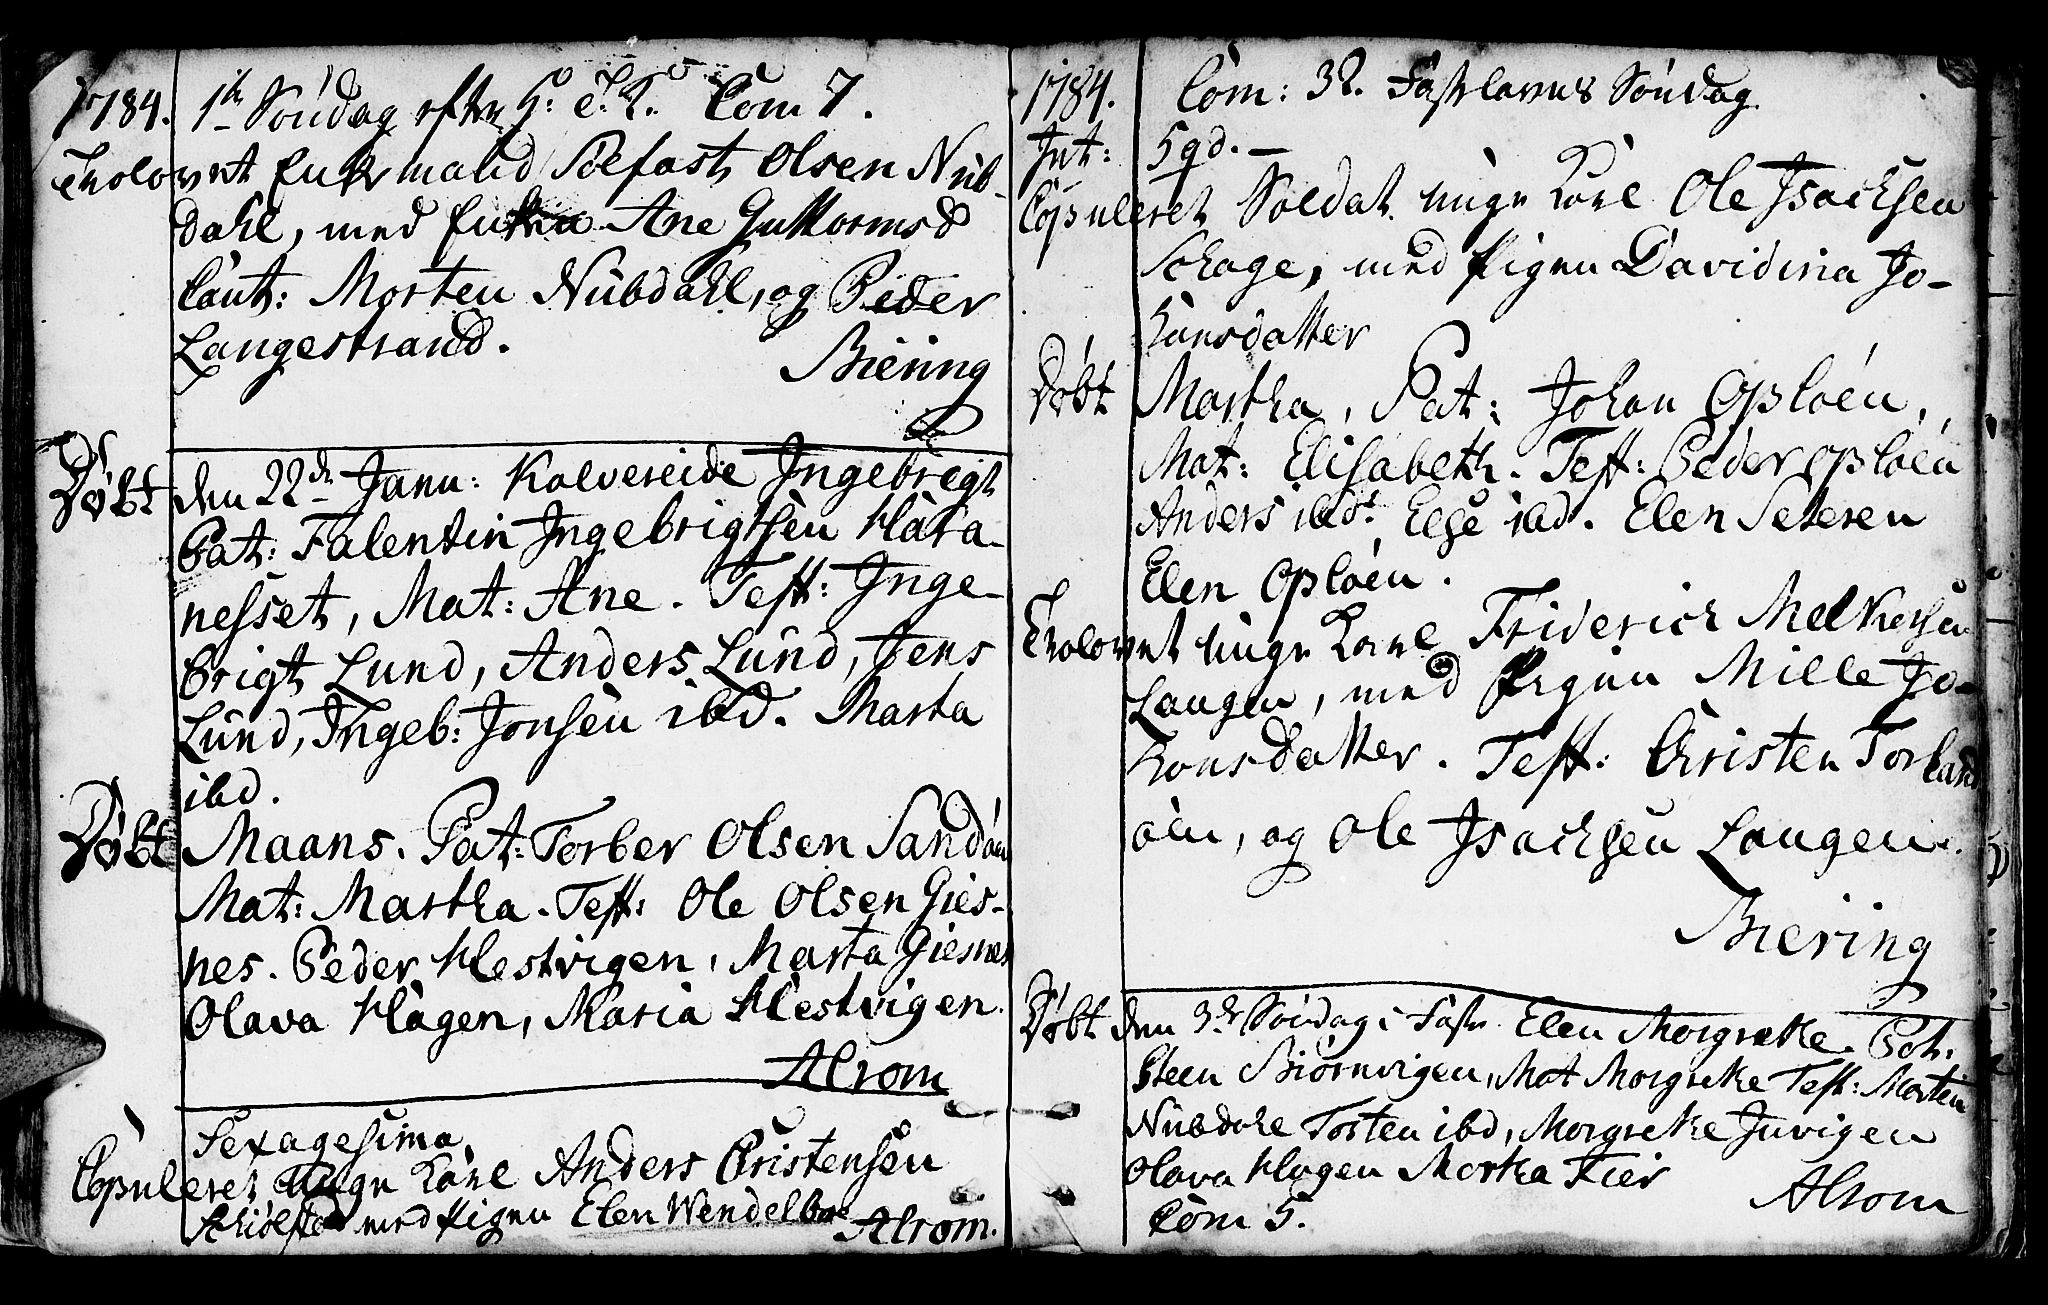 1784. 1ste Søndag efter H: 3. K. Com 7.
Trolovet Enkemand Solfast Olsen Nub-
dahl, med Enken Ane Guttormsd
Caut: Morten Nubdahl, og Peder
Langestrand.
Biering
Døbt den 22de Janu: Kolvereide Ingebregt
Pat: Falentin Ingebrigtsen Hara-
nesset, Mat: Ane. Test: Inge-
brigt Lund, Anders Lund, Jens
Lund, Ingeb: Jonsen ibd. Marta
ibd.
Døbt Maans. Pat: Torber Olsen Sandøen
Mat: Martha. Test: Ole Olsen Gies-
nes. Peder Hestvigen, Marta Giesnes
Olava Hagen, Maria Hestvigen.
Alrom
Sexagesima
Copuleret Unge Karl Anders Cristensen
med Pigen Elen Wendelboe
Alrom.
1784. Com: 38. Fastelavns Søndag
Int: 5 qd. —
Copuleret Soldat unge Karl Ole Isachsen
Schage, med Pigen Davidina Jo-
hansdatter
Døbt Martha, Pat: Johan Opløen,
Mat: Elisabeth. Test: Peder Opløen
Anders ibd: Else ibd. Elen Seteren
Elen Opløen.
Trolovet unge Karl Friderich Melkersen
Langen, med Pigen Mille Jo-
honsdatter. Test: Christen Torland
øen, og Ole Isachsen Langen.
Biering
Døbt den 3de Søndag i Faste Elen Morgrethe. Pat:
Steen Biørnvigen, Mat Morgrethe Test: Morten
Nubdahl Torsten ibd, Morgrethe Juvigen
Olava Hagen Martha Fier
Alrom
Com 5.